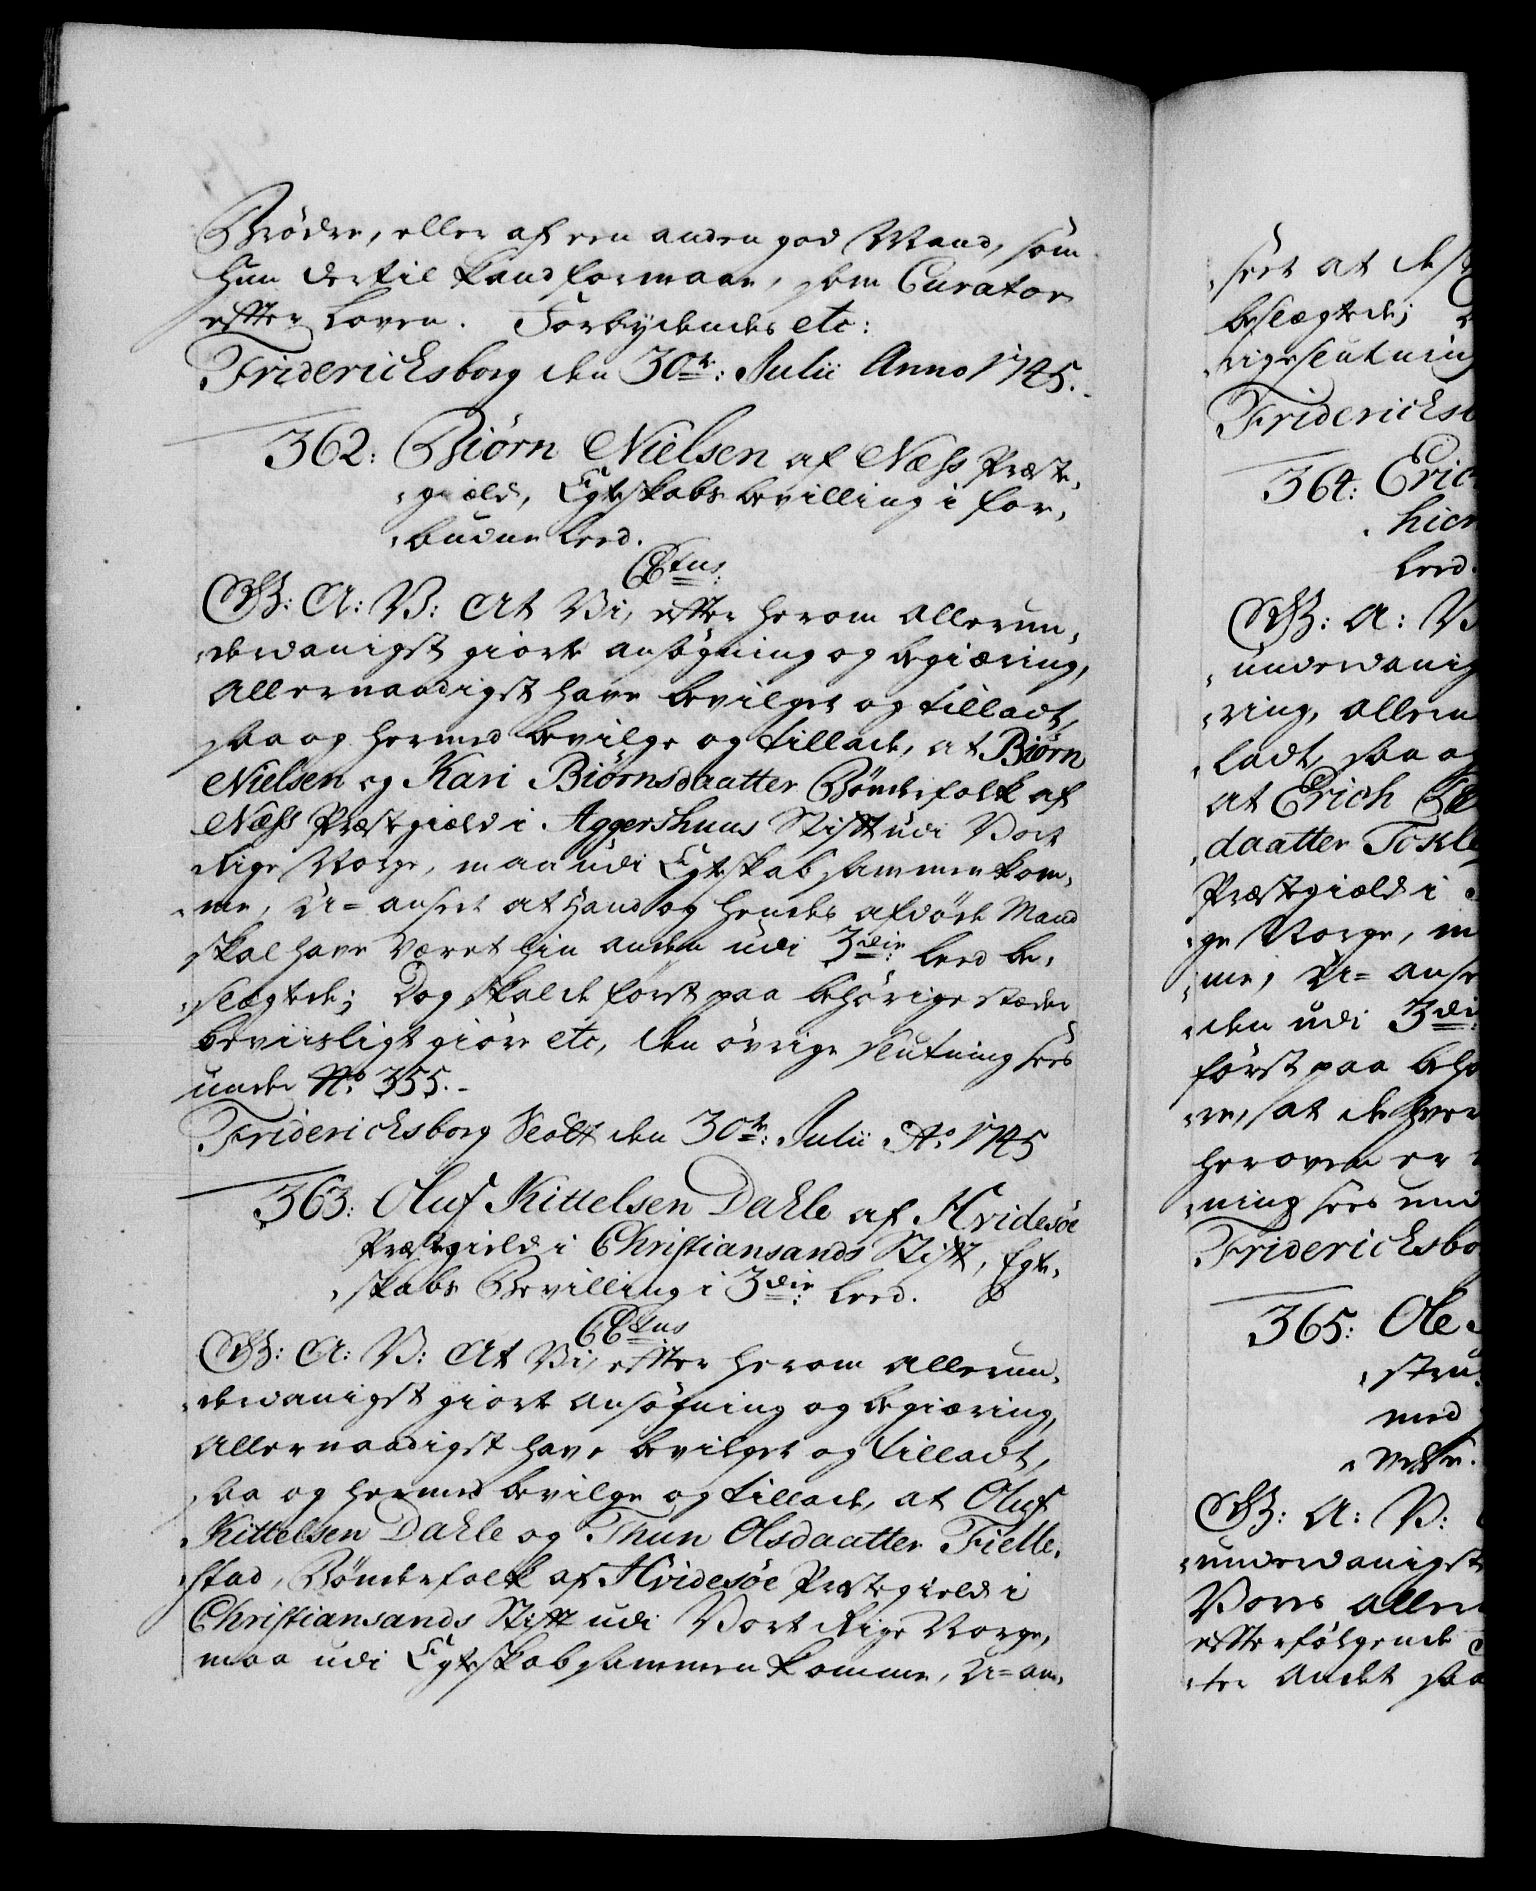 Brödre, eller af een anden god Mand, som
hun dertil kand formaae, som Curator
efter Loven. Forbydendes etc:
Friderichsborg den 30te: Julii Anno 1745.
362: Biörn Nielsen af Næss Præste-
gield, Egteskabs bevilling i for-
budne Leed.
Gratus
G: A: V: At Vi, efter herom allerun-
derdanigst giorte ansögning og begiæring,
allernaadigst have bevilget og tilladt,
saa og hermed bevilge og tillade, at Biørn
Nielsen og Kari Biørnsdaatter Bönderfolk af
Næss Præstegield i Aggershuus Stift udi Vort
Rige Norge, maa udi Egteskab sammenkom-
me, U=anseet at hand og hendes afdöde Mand
skal have været hin anden udi 3die: Leed be-
slægtede; Dog skal de först paa behörige stæder
beviisligt giöre etc, den övrige slutning sees
under No. 355.
Friderichsborg Slott den 30te: Julii Ao. 1745
363: Oluf Kittelsen Dahle af Hvidesöe
Præstegield i Christiansands Stift, Egte-
skabs Bevilling i 3die: Leed.
Gratus
G: A: V: At Vi, efter herom allerun-
derdanigst giorte ansögning og begiæring,
allernaadigst have bevilget og tilladt,
saa og hermed bevilge og tillade, at Oluf
Kittelsen Dahle og Thun Olsdaatter Fielle-
stad, Bönderfolk af Hvidesöe Præstegield i
Christiansands Stift udi Vort Rige Norge,
maa udi Egteskab sammen komme, U=an-
seet at de
beslægtede;
rige slutning
Fridericksb
364: Eric
hier
Leed.
G: A: V
underdanig
ring, allern
ladt, saa og
at Erich
daatter Tokle
Præstegield i
ge Norge, m
me, U=anse
den udi 3die:
först paa behö
re, at de hver
heroven er
ning sees und
Friderichsbo
365: Ole
stru
med
G: A: V:
underdanigst
Vores aller
efterfölgende
ter andet saa